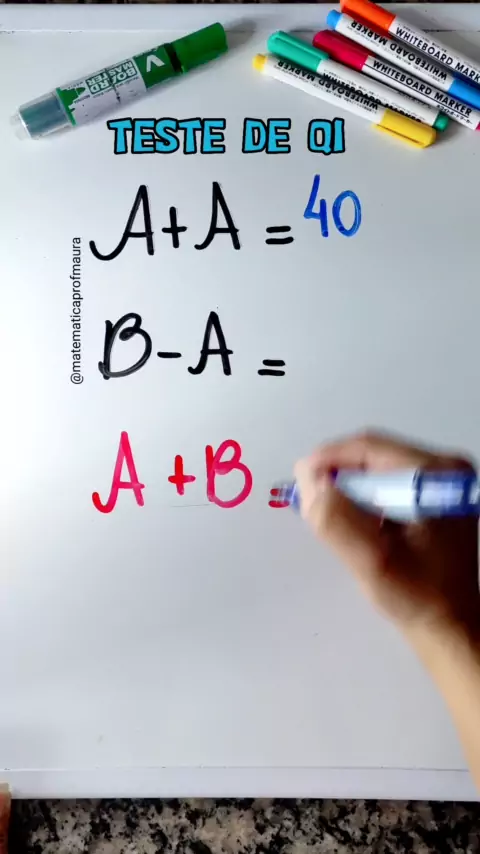 WHITEBOARD MARKER
WHITEBOARD MARKER
WHITEBOARD MARKER
WHITEBOARD MARKER
BOARD
MASTER
V
TESTE DE QI
A+A = 40
@matematicaprofmaura
B-A =
A+B =